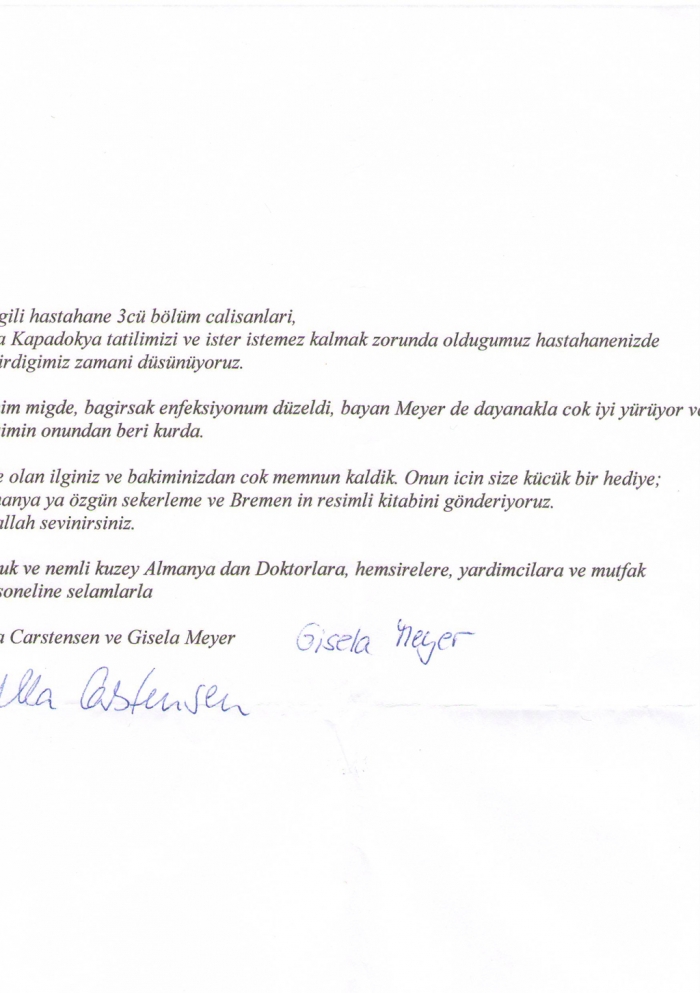 gili hastahane 3cü bölüm calisanlari,
a Kapadokya tatilimizi ve ister istemez kalmak zorunda oldugumuz hastahanenizde
irdigimiz zamani düsünüyoruz.
im migde, bagirsak enfeksiyonum düzeldi, bayan Meyer de dayanakla cok iyi yürüyor ve
imin onundan beri kurda.
e olan ilginiz ve bakiminizdan cok memnun kaldik. Onun icin size kücük bir hediye;
anya ya özgün sekerleme ve Bremen in resimli kitabini gönderiyoruz.
allah sevinirsiniz.
uk ve nemli kuzey Almanya dan Doktorlara, hemsirelere, yardimcilara ve mutfak
soneline selamlarla
a Carstensen ve Gisela Meyer Gisela Meyer
Carstensen